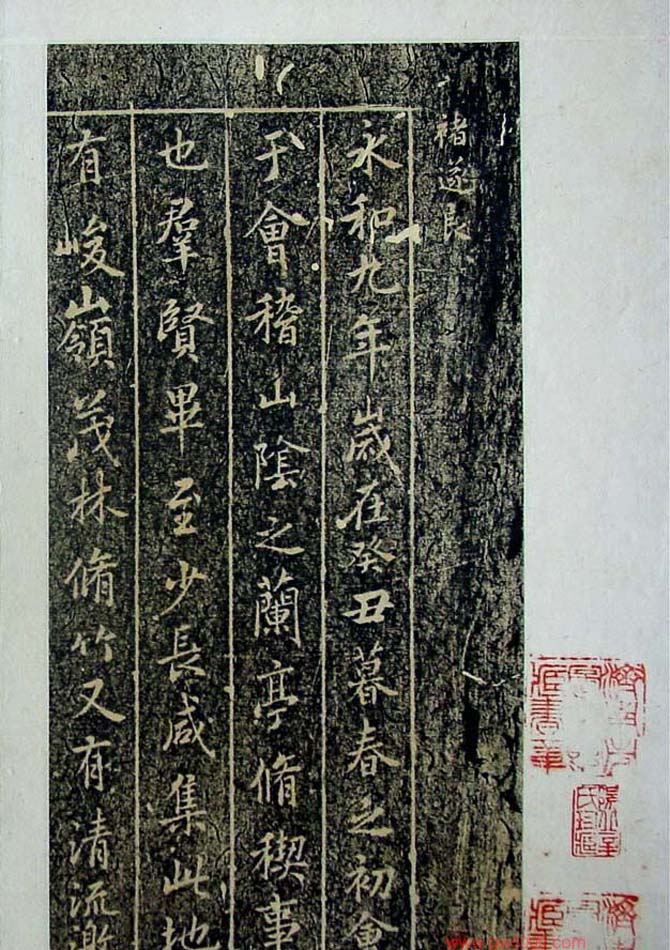 褚遂良
永和九年歲在癸丑暮春之初會
于會稽山陰之蘭亭脩稧事
也羣賢畢至少長咸集此地
有峻山嶺茂林脩竹又有清流激